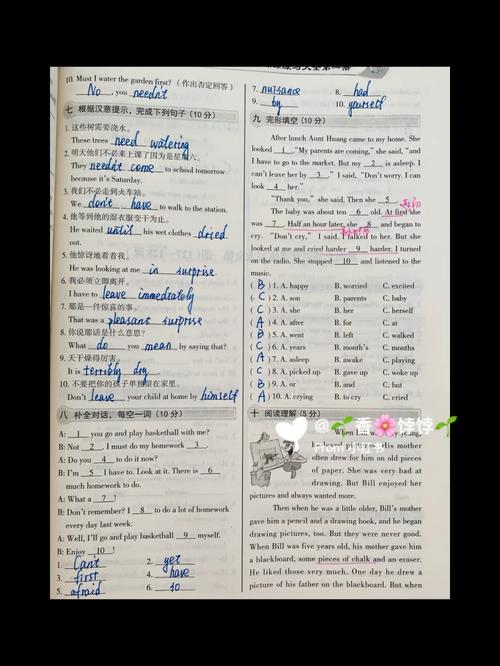 10. Must I water the garden first? (作出否定回答)
No, you needn't
七 根据汉意提示,完成下列句子(10分)
1. 这些树需要浇水。
These trees need watering
2. 明天他们不必来上课了因为是星期六。
They needn't come to school tomorrow
because it's Saturday.
3. 我们不必走到火车站。
We don't have to walk to the station.
4. 他等到他的湿衣服变干为止。
He waited until his wet clothes dried
out.
5. 他惊讶地看着我。
He was looking at me in surprise
6. 我必须立即离开。
I have to leave immediately
7. 那是一件惊喜的事。
That was a pleasant surprise
8. 你说那话是什么意思?
What do you mean by saying that?
9. 天干燥得厉害。
It is terribly dry
10. 不要把你的孩子单独留在家里。
Don't leave your child at home by himself
八 补全对话,每空一词(10分)
A: 1 you go and play basketball with me?
B: Not 2. I must do my homework 3.
A: Do you 4 to do it now?
B: I'm 5 I have to. Look at it. There is 6
much homework to do.
A: What a 7!
B: Don't remember? I 8 to do a lot of homework
every day last week.
A: Well, I'll go and play basketball 9 myself.
B: Enjoy 10!
1. Can't 2. yet
3. first 4. have
5. afraid 6. so
7. nuisance 8. had
9. by 10. yourself
九 完形填空(10分)
After lunch Aunt Huang came to my home. She
looked 1. "My parents are coming," she said, "and
I have to go to the market. But my 2 is asleep. I
can't leave her by 3" I said, "Don't worry. I can
look 4 her."
"Thank you," she said. Then she 5
The baby was about ten 6 old. At first she
was 7 Half an hour later, she 8 and began to
cry. "Don't cry," I said. I talked to her. But she
looked at me and cried harder 9 harder. I turned
on the radio. She stopped 10 and listened to the
music.
(B) 1. A. happy B. worried C. excited
(C) 2. A. son B. parents C. baby
(C) 3. A. she B. her C. herself
(A) 4. A. after B. for C. at
(A) 5. A. went B. left C. walked
(B) 6. A. years B. month's C. months
(A) 7. A. asleep B. awake C. playing
(C) 8. A. picked up B. gave up C. woke up
(B) 9. A. or B. and C. but
(A) 10. A. crying B. to cry C. cried
十 阅读理解(5分)
When Bill was very young,
he loved pictures. His mother
often drew for him on old pieces
of paper. She was very bad at
drawing. But Bill enjoyed her
pictures and always wanted more.
Then when he was a little older, Bill's mother
gave him a pencil and a drawing book, and he began
drawing pictures, too. But they were never good.
When Bill was five years old, his mother gave him
a blackboard, some pieces of chalk and an eraser.
He liked those very much. One day he drew a
picture of his father on the blackboard. But when